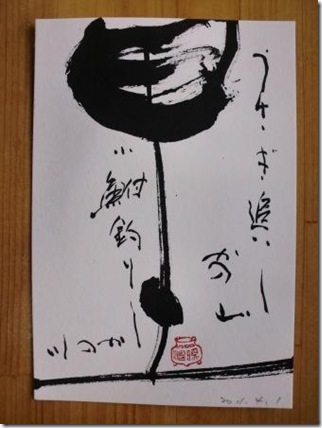 うさぎ追いし
かの山
小鮒釣りし
かの川